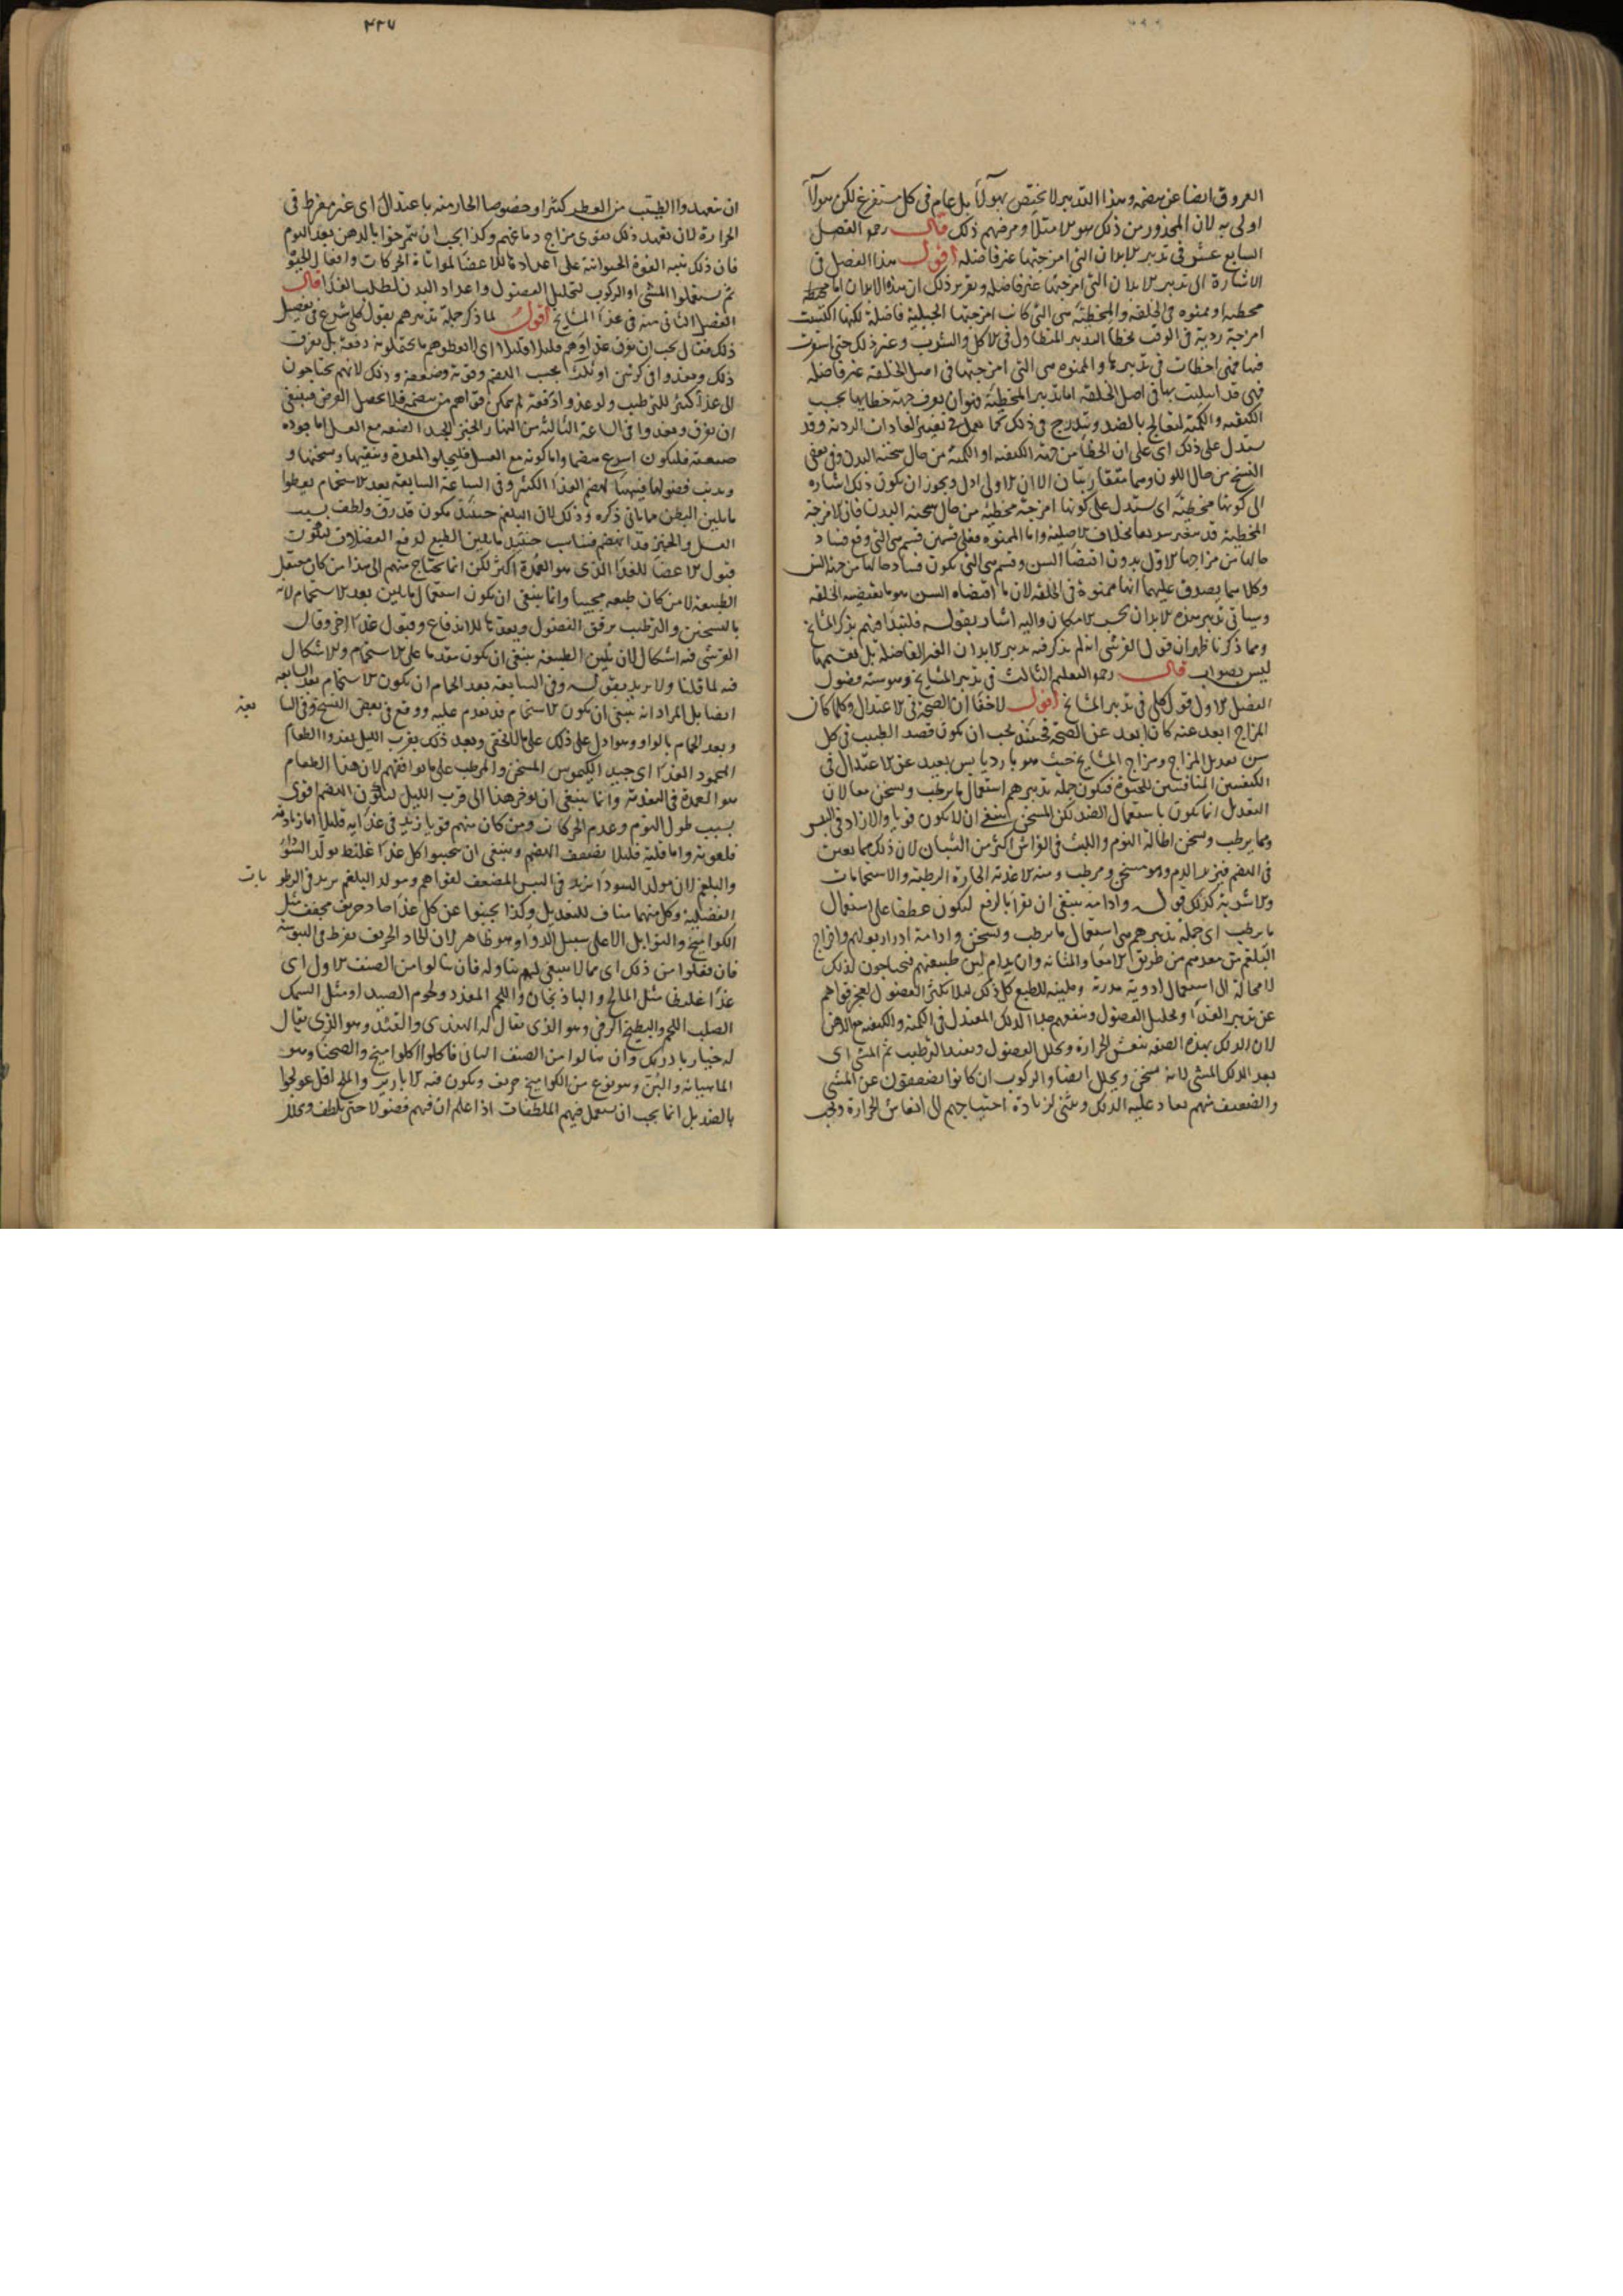 العروق ايضا عن هضمه وهذا التدبير لا يختص بهولآء بل عام فى كل مستفرغ لكن هولآء
اولى به لان المحذور من ذلك هو الامتلآ ومرضهم ذلك قال رحمه الفصل
السابع عشر فى تدبير الابدان التى امزجتها غير فاضله اقول هذا الفصل فى
الاشارة الى تدبير الابدان التى امزجتها غير فاضله وتقرير ذلك ان هذه الابدان اما
مخطيه او ممنوه فى الخلقه والمخطيه هى التى كانت امزجتها الجبلية فاضلة لكنها اكتسبت
امزجة ردية فى الوقت بخطا التدبير المتطاول فى الاكل والشرب وغير ذلك حتى استقرت
فيها فهى اخطات فى تدبيرها والممنوه هى التى امزجتها فى اصل الخلقة غير فاضله
فهى قد ابتليت بها فى اصل الخلقه اما تدبير المخطيه فهو ان يعرف جهة خطايها بحسب
الكيفيه والكميه ليعالج بالضد ويتدرج فى ذلك كما فى تغيير العادات الردية وقد
يستدل على ذلك اى على ان الخطا من جهة الكيفيه او الكميه من حال سحنة البدن وفى بعض
النسخ من حال اللون وهما متقاربتان الا ان الاولى ادل ويجوز ان يكون ذلك اشاره
الى كونها مخطية اى يستدل على كونها امزجة مخطية من حال سحنه البدن فان الامزجة
المخطيه قد تتغير سريعا بخلاف الاصلية واما الممنوه فعلى قسمين قسم هى التى وقع فساد
حالها من مزاجها الاول بدون اقتضا السن وقسم هى التى يكون فساد حالها من جهة السن
وكلاهما يصدق عليهما انها ممنوة فى الخلقه لان ما اقتضاه السن هو ما تقتضيه الخلقه
وسياتى تدبير هذه الابدان بحسب الامكان واليه اشار بقوله فلنبدا منهم بذكر المشايخ
ومما ذكرنا ظهر ان قول القرشى انه لم يذكر فيه تدبير الابدان الغير الفاضله بل تقسيمها
ليس بصواب قال رحمه التعليم الثالث فى تدبير المشايخ وهو ستة فصول
الفصل الاول قول كلى فى تدبير المشايخ اقول لا خفا ان الصحة فى الاعتدال وكلما كان
المزاج ابعد عنه كان ابعد عن الصحة فحينئذ يجب ان يكون قصد الطبيب فى كل
سن تعديل المزاج ومزاج المشايخ حيث هو بارد يابس بعيد عن الاعتدال فى
الكيفيتين المنافيتين للحيوة فيكون جملة تدبيرهم استعمال ما يرطب ويسخن معا لان
التعديل انما يكون باستعمال الضد لكن المسخن ينبغى ان لا يكون قويا والا زاد فى اليبس
ومما يرطب ويسخن اطالة النوم واللبث فى الفراش اكثر من الشبان لان ذلك مما يعين
فى الهضم فيزيد الدم وهو مسخن ومرطب ومنه الاغذيه الحارة الرطبة والاستحمامات
والاشربة كذلك قوله وادامة ينبغى ان تقرا بالرفع ليكون عطفا على استعمال
ما يرطب اى جملة تدبيرهم هى استعمال ما يرطب ويسخن وادامة ادرار بولهم واخراج
البلغم من معدهم من طريق الامعا والمثانه وان يدام لين طبيعتهم فيحتاجون لذلك
لا محالة الى استعمال ادوية مدرة وملينه للطبع كل ذلك ليلا تكثر الفضول لعجز قواهم
عن تدبير الغذا وتحليل الفضول وينفعهم جدا الدلك المعتدل فى الكمية والكيفيه مع الدهن
لان الدلك بهذه الصفه ينعش الحرارة ويحلل الفضول ويفيد الترطيب ثم المشى اى
بعد الدلك المشى لانه يسخن ويحلل ايضا والركوب ان كانوا يضعفون عن المشى
والضعيف منهم يعاد عليه الدلك ويثنى لزيادة احتياجهم الى انعاش الحرارة ويجب
٢٢٧
ان يتعهدوا الطيب من العطر كثيرا وخصوصا الحار منه باعتدال اى غير مفرط فى
الحرارة لان تعهد ذلك يقوى مزاج دماغهم وكذا يجب ان يتمرخوا بالدهن بعد النوم
فان ذلك ينبه القوة الحيوانية على اعداد الاعضا لمواتاة الحركات وافعال الحيوة
ثم يستعملوا المشى او الركوب لتحليل الفضول واعداد البدن لطلب الغذا قال
الفصل الثانى منه فى غذا المشايخ اقول لما ذكر جملة تدبيرهم بقول كلى شرع فى تفصيل
ذلك فقال يجب ان يفرق غذاوهم قليلا قليلا اى لا يعطوهم ما يحتملونه دفعة بل يفرق
ذلك ويغذوا فى كرتين او ثلث بحسب الهضم وقوته وضعفه وذلك لانهم يحتاجون
الى غذا كثير للترطيب ولو غذوا دفعة لم يمكن قواهم من هضمه فلا يحصل الغرض فينبغى
ان يفرق ويغذوا فى الساعة الثالثة من النهار الخبز الجيد الصنعه مع العسل اما جوده
صنعته فليكون اسرع هضما واما كونه مع العسل فليجلوا المعدة وينقيها ويسخنها و
يذيب فضولها فيهيئا لهضم الغذا الكثير وفى الساعة السابعة بعد الاستحمام يعطوا
ما يلين البطن مما ياتى ذكره وذلك لان البلغم حينئذ يكون قد رق ولطف بسبب
العسل والخبز قد انهضم فناسب حينئذ ما يلين الطبع لدفع الفضلات ليكون
قبول الاعضا للغذا الذى هو العمدة اكثر لكن انما يحتاج منهم الى هذا من كان معتقل
الطبيعة لا من كان طبعه مجيبا وانما ينبغى ان يكون استعمال ما يلين بعد الاستحمام لانه
بالتسخين والترطيب يرقق الفضول ويعدها للاندفاع وقبول غذا اخر وقال
القرشى فيه اشكال لان تليين الطبيعه ينبغى ان يكون متقدما على الاستحمام ولا اشكال
فيه لما قلنا ولا يريد بقوله وفى السابعة بعد الحمام ان يكون الاستحمام بعد السابعه
ايضا بل المراد انه ينبغى ان يكون الاستحمام قد تقدم عليه ووقع فى بعض النسخ وفى السا
بعة
وبعد الحمام بالواو وهو ادل على ذلك على ما لا يخفى وبعد ذلك بقرب الليل يغذوا الطعام
المحمود الغذا اى جيد الكيموس المسخن والمرطب على ما يوافقهم لان هذا الطعام
هو العمدة فى التغذية وانما ينبغى ان يوخر هذا الى قرب الليل ليكون الهضم اقوى
بسبب طول النوم وعدم الحركات ومن كان منهم قويا زيد فى غذايه قليلا اما زيادته
فلقوته واما قلته فليلا يضعف الهضم وينبغى ان يجتنبوا كل غذا غليظ يولد السودا
والبلغم لان مولد السودا يزيد فى اليبس المضعف لقواهم ومولد البلغم يزيد فى الرطو
بات
الفضلية وكل منهما مناف للتعديل وكذا يجتنبوا عن كل غذا حاد حريف مجفف مثل
الكواميخ والتوابل الا على سبيل الدوا وهو ظاهر لان الحاد الحريف يفرط فى اليبوسة
فان فعلوا من ذلك اى مما لا ينبغى لهم تناوله فان نالوا من الصنف الاول اى
غذا غليظا مثل المالح والباذنجان واللحم المقدد ولحوم الصيد او مثل السمك
الصلب اللحم والبطيخ الرقى وهو الذى يقال له الهندى والقثد وهو الذى يقال
له خيار بادرنك وان نالوا من الصنف الثانى فاكلوا الكواميخ والصحنا وهو
الماهيانه والبن وهو نوع من الكواميخ حريف ويكون فيه الابازير والملح اقل عولجوا
بالضد بل انما يجب ان يستعمل فيهم الملطفات اذا علم ان فيهم فضولا حتى تلطف وتحلل